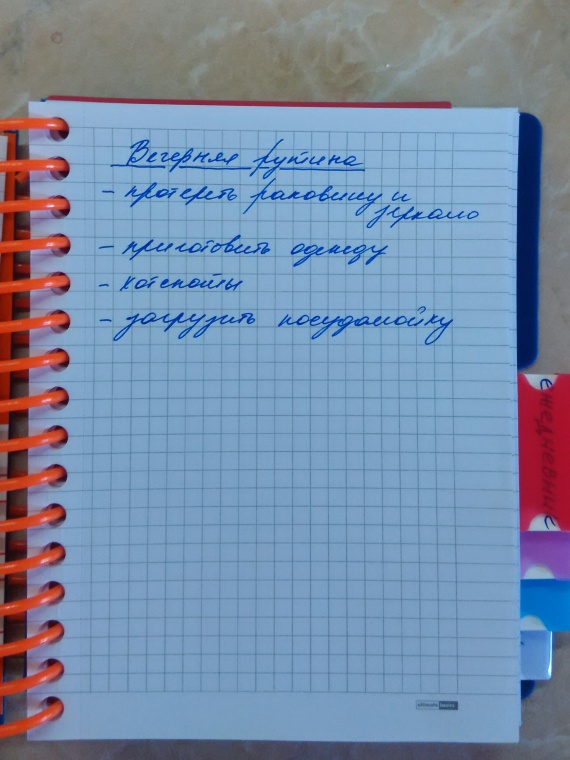 Вечерняя рутина
- протереть раковину и
зеркало
- приготовить одежду
- хотспоты
- загрузить посудомойку
ежедневные